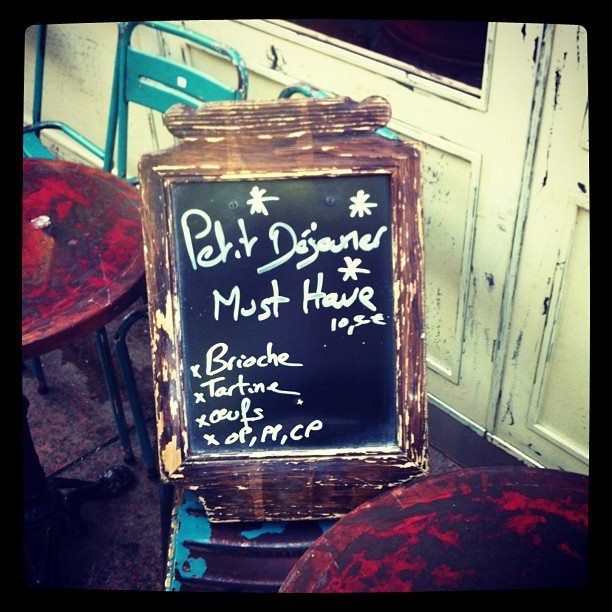 Petit Déjeuner
Must Have
10,5€
x Brioche
x Tartine
x œufs
x OP, PP, CP